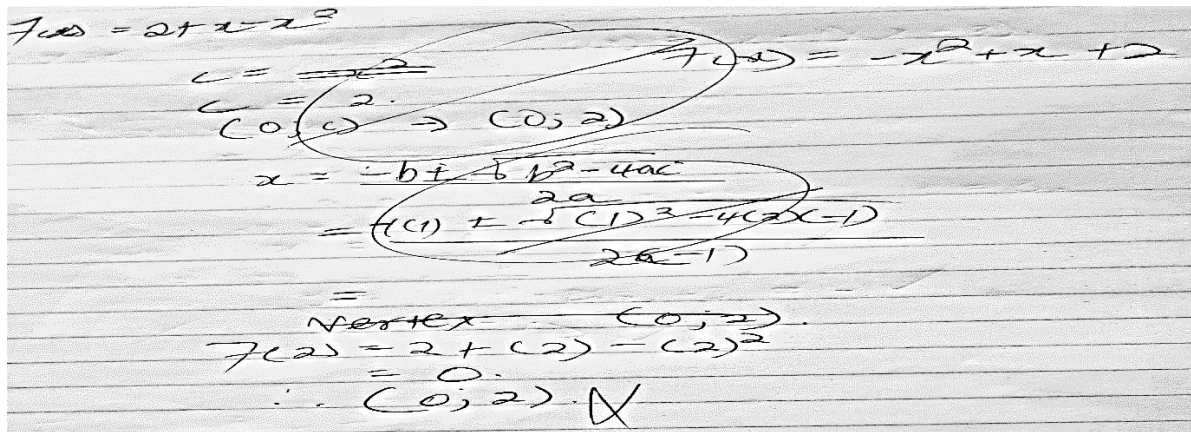 f(x) = 2 + x - x²
f(x) = -x² + x + 2
c = 2
c = 2.
(0; c) → (0; 2)
x = -b ± √b² - 4ac
2a
= -(1) ± √(1)² - 4(2)(-1)
2(-1)
=
Vertex (0; 2).
f(2) = 2 + (2) - (2)²
= 0.
∴ (0; 2).